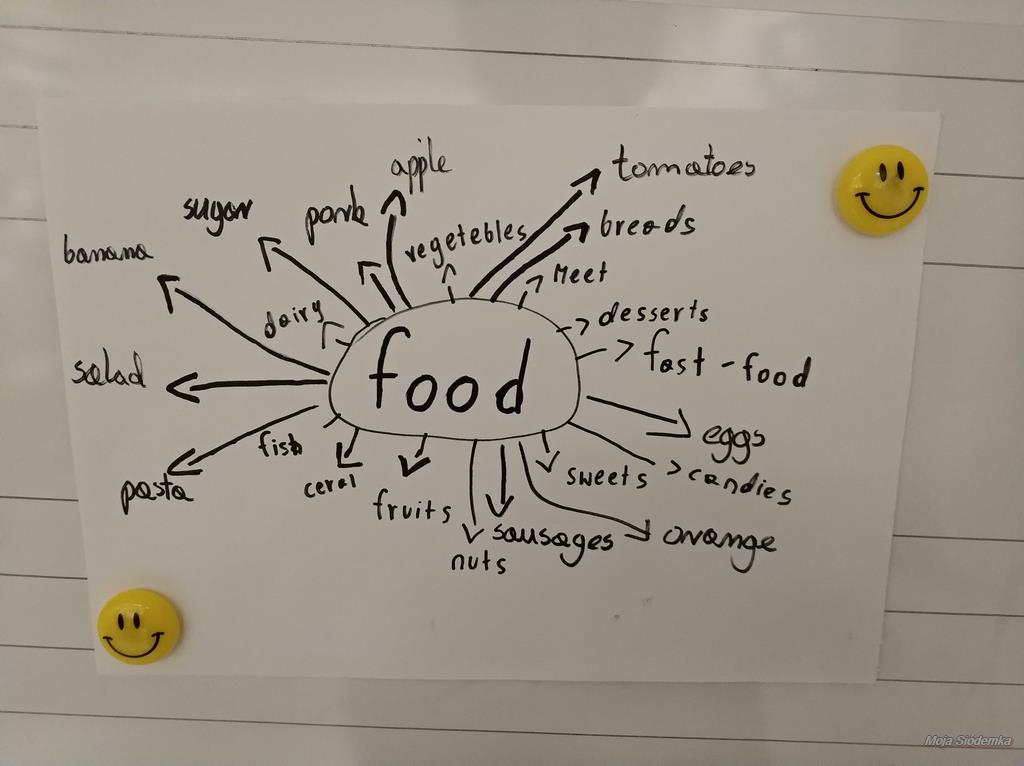 apple
tomatoes
sugar
pork
vegetebles
breads
banana
Meet
dairy
desserts
fast-food
food
salad
eggs
fish
sweets
candies
pasta
cerel
fruits
nuts
sausages
orange
Moja Siódemka